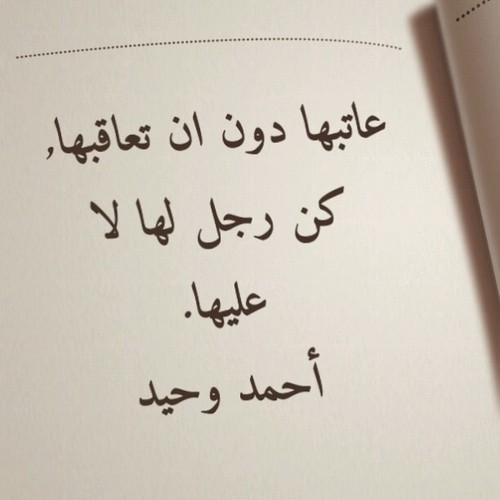 عاتبها دون ان تعاقبها,
كن رجل لها لا
عليها.
أحمد وحيد